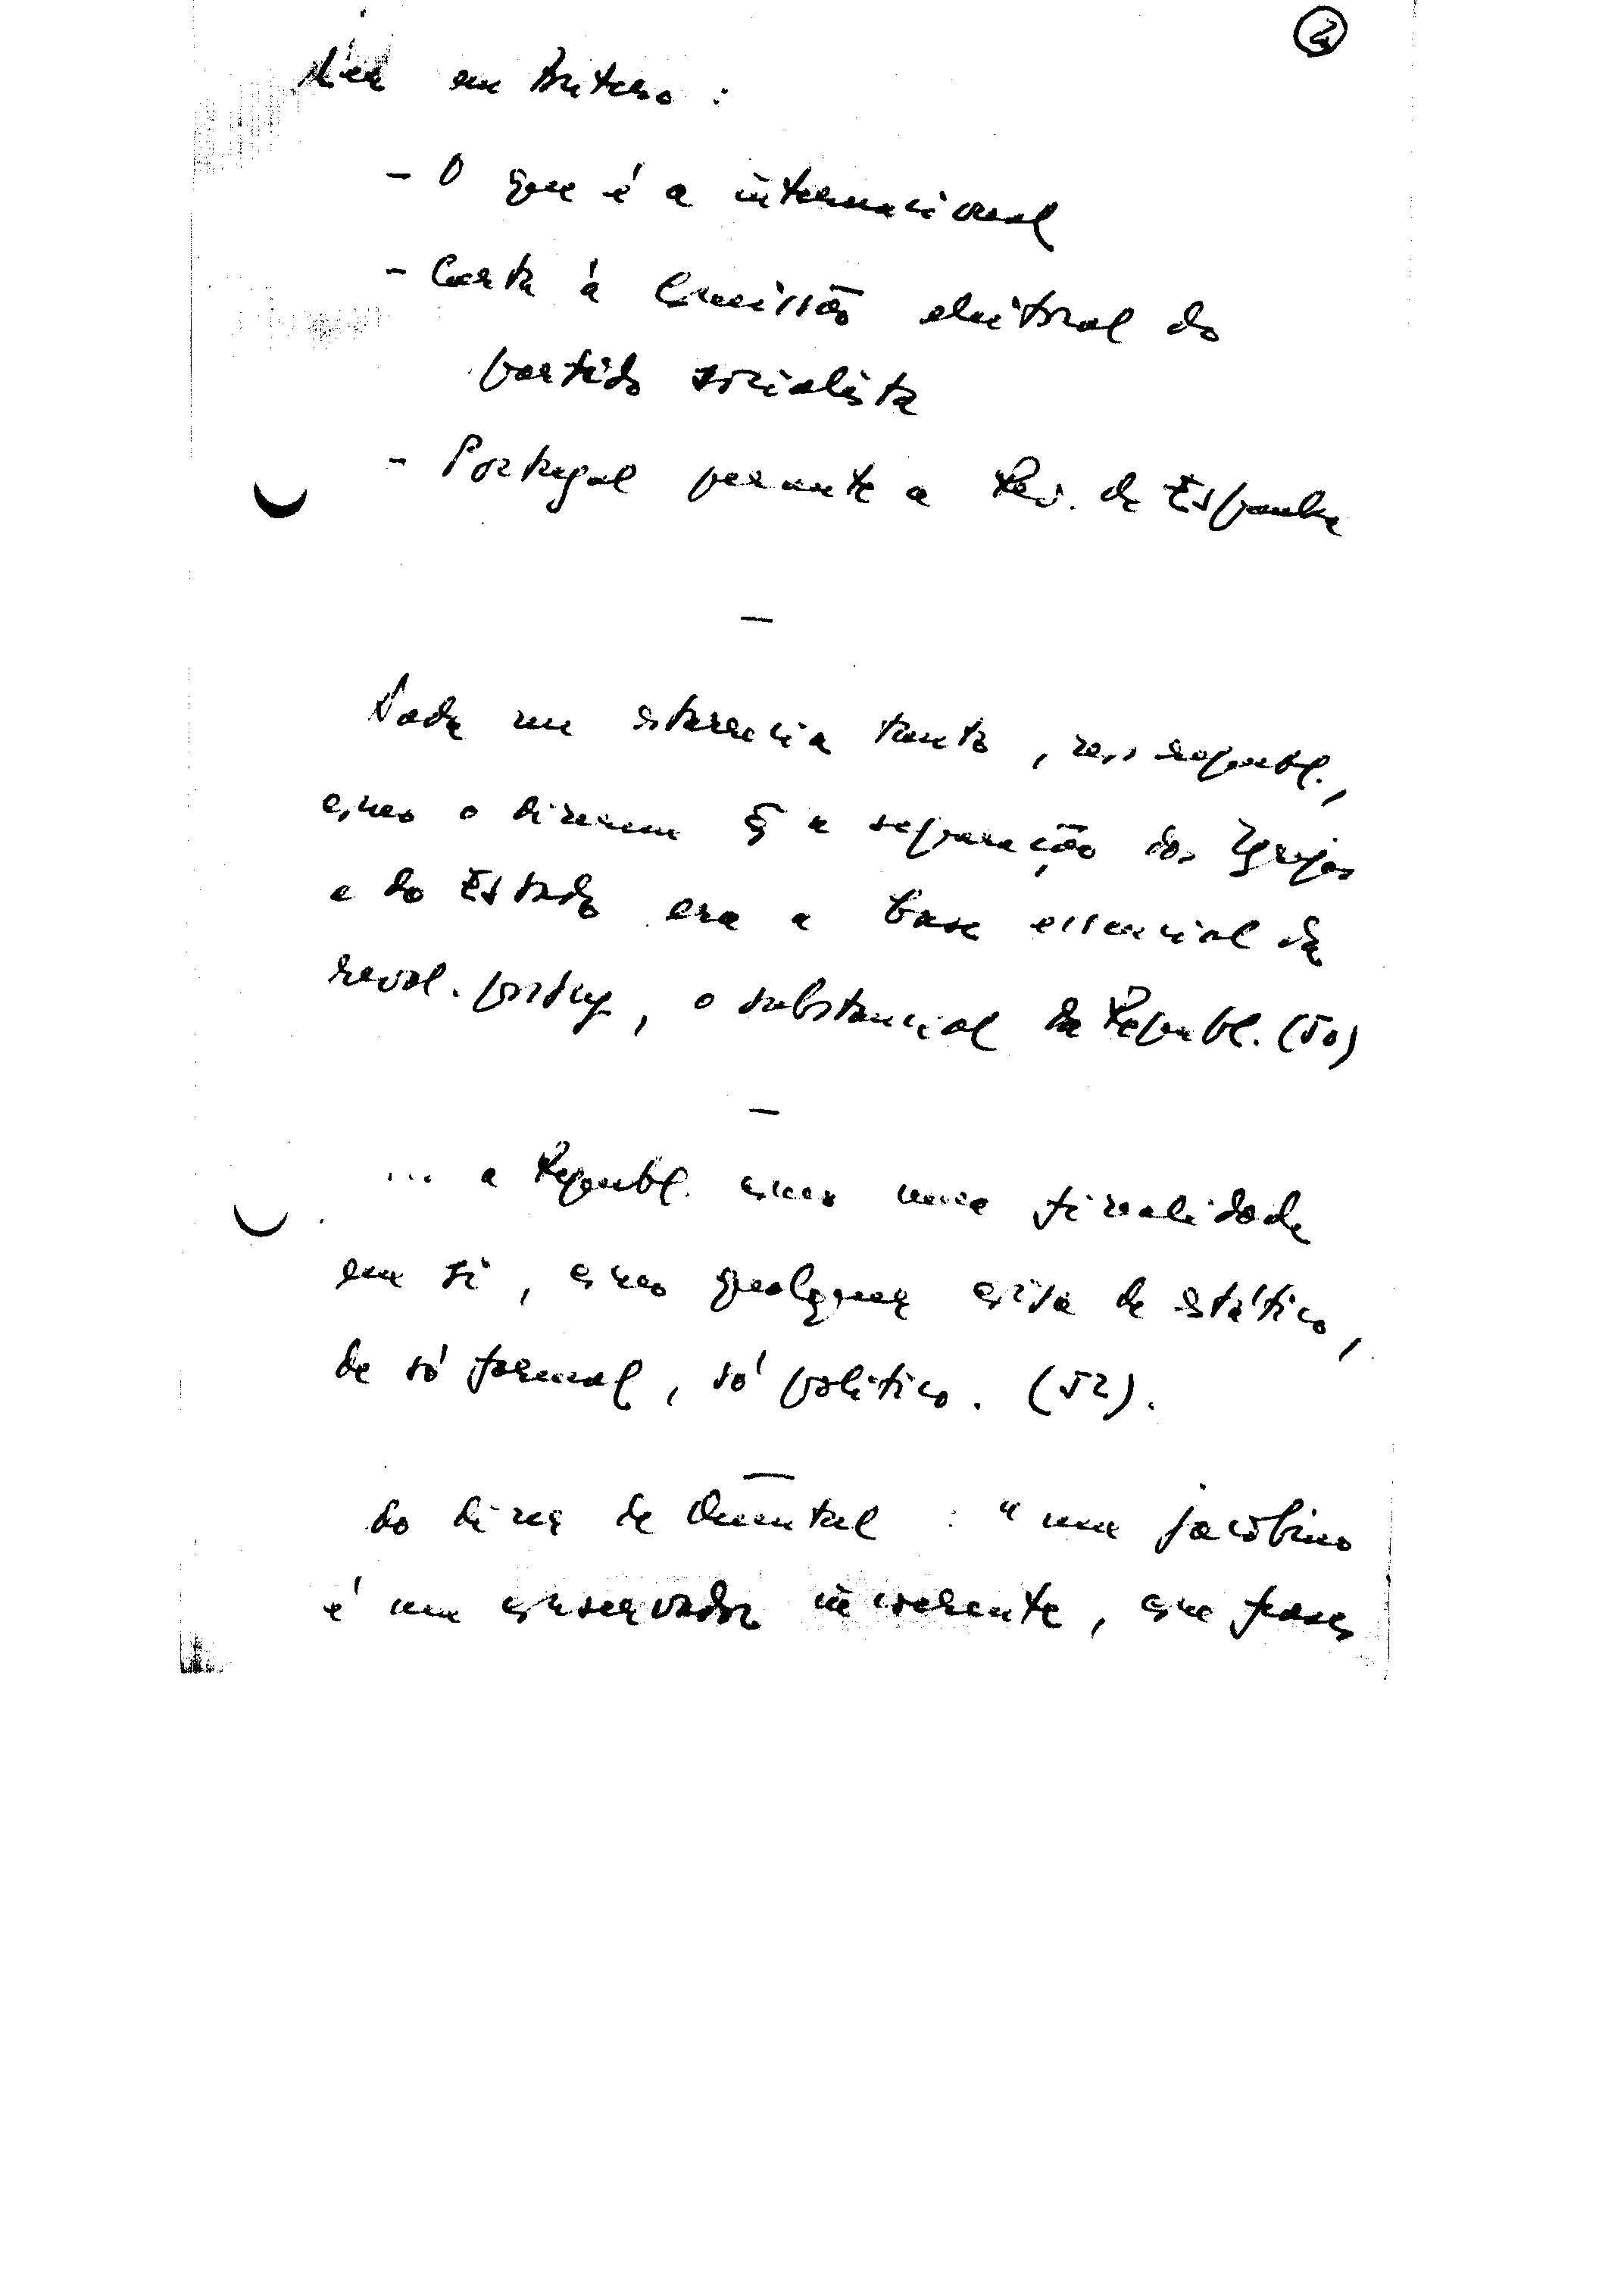 2
Ler em Antero:
- O que é a internacional
- Carta à Comissão eleitoral do
partido socialista
- Portugal perante a Rev. de Espanha
—
Nada me interessia tanto, nos republ.,
como o dizerem q̃ a separação das Igrejas
e do Estado era a base essencial da
revol. portug, o substancial da Républ. (50)
—
... a Republ. como uma finalidade
em si, como qualquer coisa de estático,
de só formal, só político. (52).
—
do dizer de Quental : " um jacobino
é um conservador incoerente, com frases